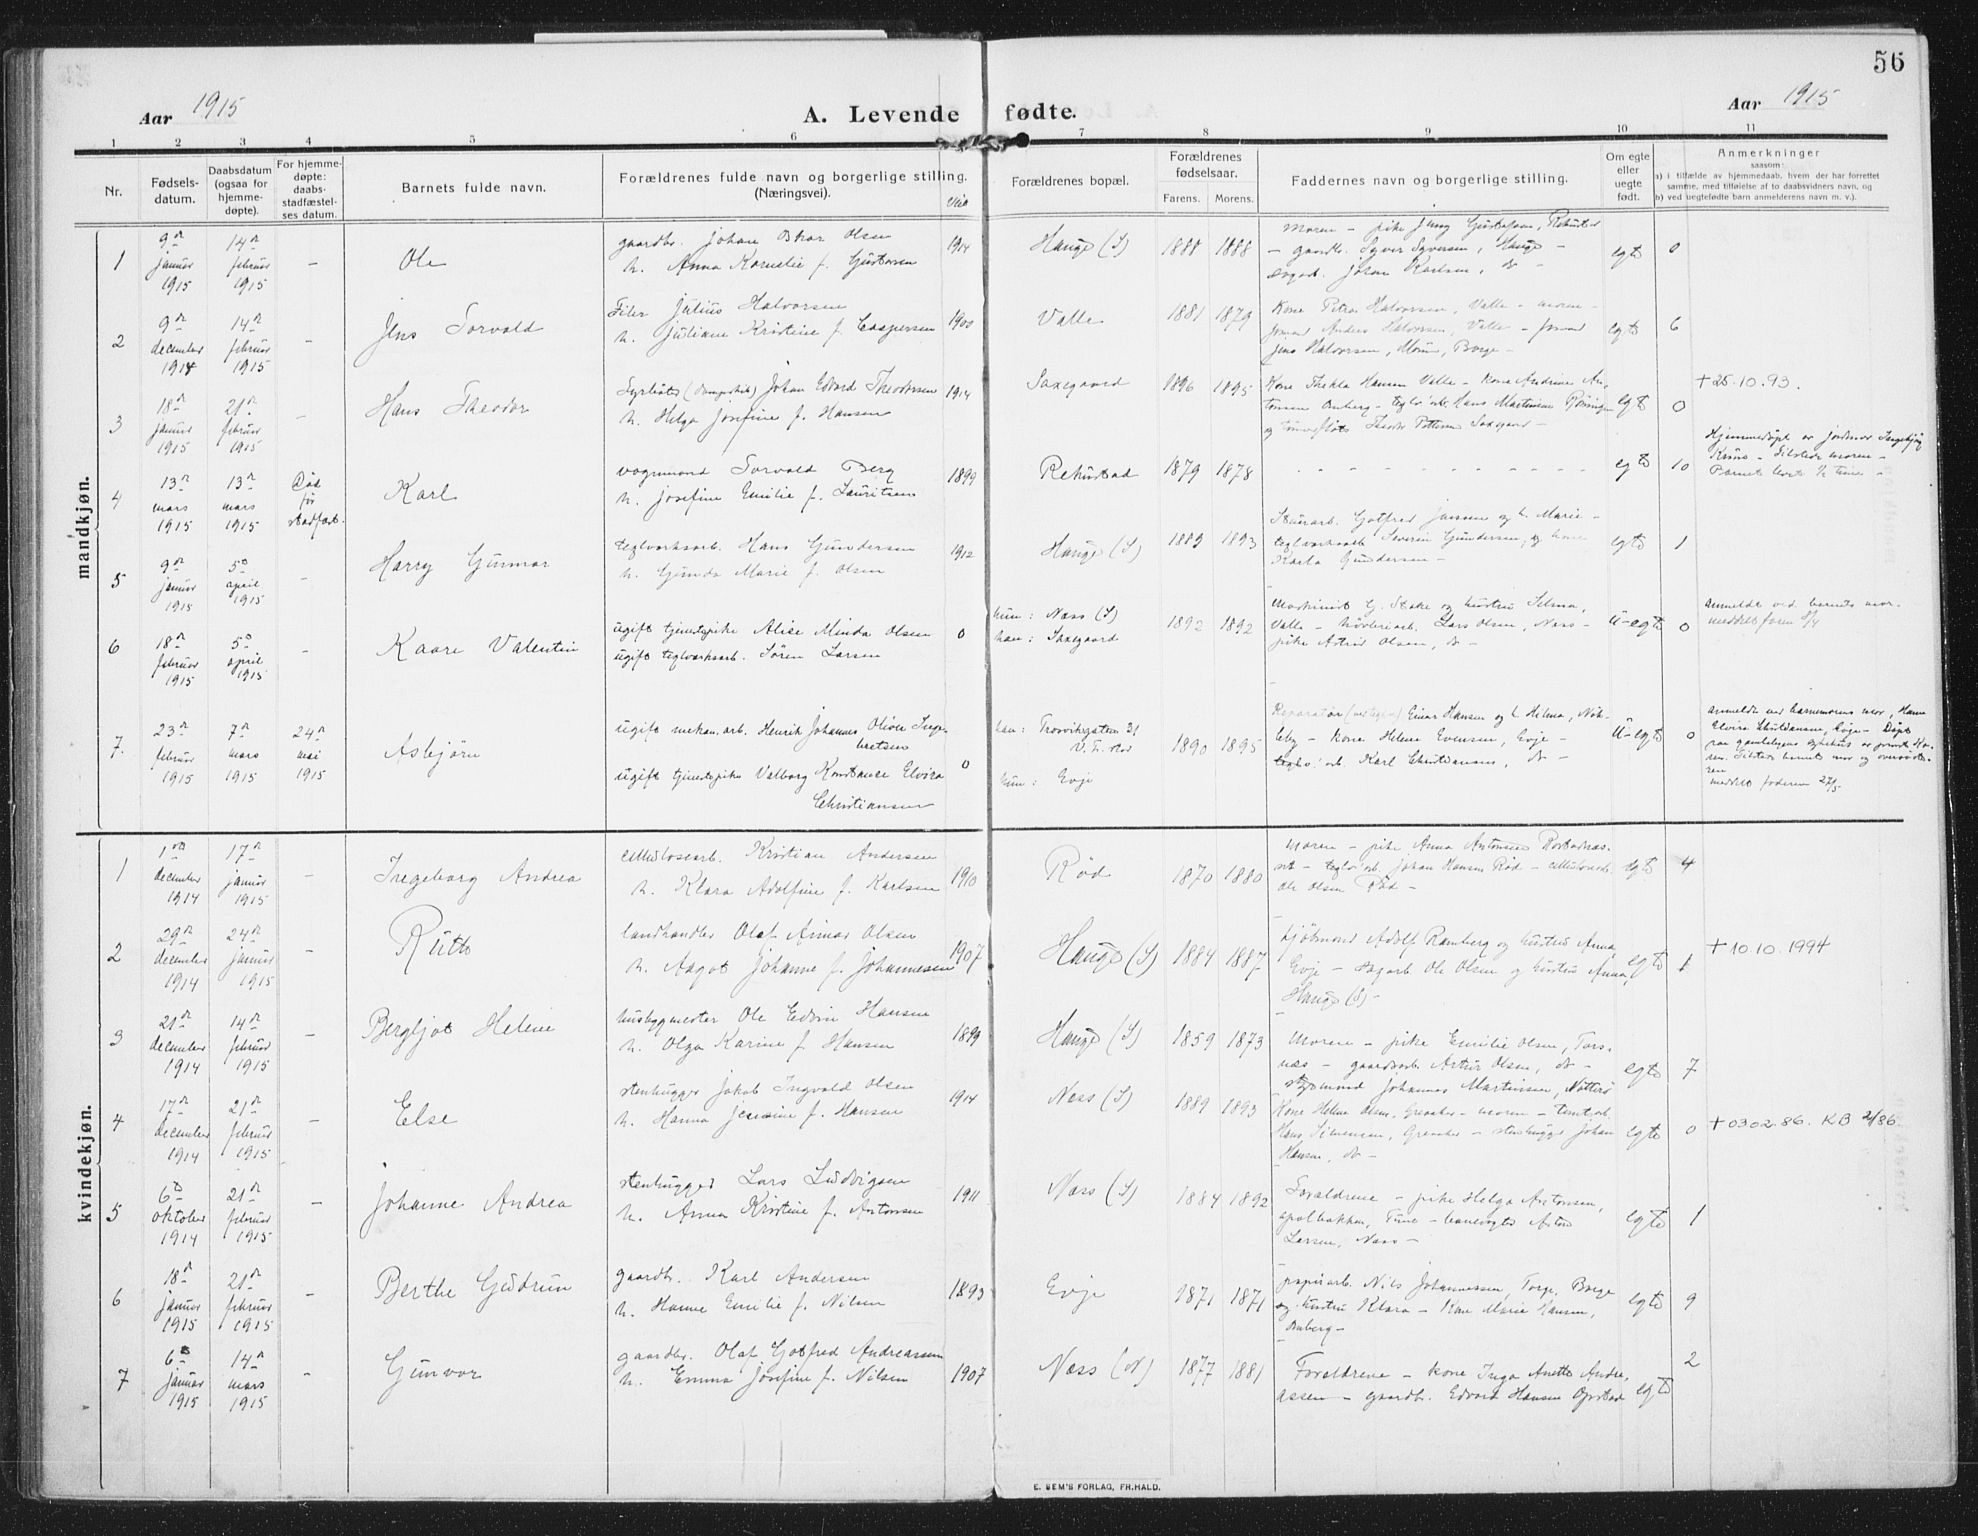 56
Aar 1915
A. Levende fødte.
Aar 1915
1 2 3 4 5 6 7 8 9 10 11
Nr.
Fødsels-
datum.
Daabsdatum
(ogsaa for
hjemme-
døpte).
For hjemme-
døpte:
daabs-
stadfæstel-
ses datum.
Barnets fulde navn.
Forældrenes fulde navn og borgerlige stilling.
(Næringsvei).
Viet
Forældrenes bopæl.
Forældrenes
fødselsaar.
Farens. Morens.
Faddernes navn og borgerlige stilling.
Om egte
eller
uegte
født.
Anmerkninger
saasom:
a) i tilfælde av hjemmedaab, hvem der har forrettet
samme, med tilføielse af to daabsvidners navn, og
b) ved uegtefødte barn anmelderens navn m. v.).
mandkjøn.
1
9de januar 1915
14de februar 1915
-
Ole
gaardbr. Johan Oskar Olsen
h. Anna Kornelie f. Gustavsen
1914
Hauge (S)
1888 1888
Moren - pike Jenny Gustafsen, Rekustad
- gaardb. Syver Syversen, Hauge -
Johan Karlsen, do -
egte
0
2
9de december 1914
14de februar 1915
-
Jens Torvald
Filer Julius Halvorsen
h. Juliane Kristine f. Caspersen
1900
Valle
1881 1879
Kone Petra Halvorsen, Valle - moren -
Anders Halvorsen, Valle -
Jens Halvorsen, Borge -
egte
6
3
18de januar 1915
21de februar 1915
-
Hans Theodor
Fyrbøter (dampskib) Johan Edvard Theodorsen
h. Helga Josefine f. Hansen
1914
Saxegaard
1896 1895
Kone Thekla Hansen Valle - kone Andrine An-
tonsen Omberg - teglv.arb. Hans Martinsen
og Theodor Pettersen Saxegaard -
egte
0
+ 25.10.93.
4
13de mars 1915
13de mars 1915
Død
før
stadfæst.
Karl
vognmand Torvald Berg
h. Josefine Emilie f. Lauritsen
1899
Rekustad
1879 1878
egte
10
Hjemmedøpt av jordmor Ingebjørg
Tilstede moren -
Barnet levet ½ time -
5
9de januar 1915
5te april 1915
-
Harry Gunnar
teglverksarb. Hans Gundersen
h. Gunda Marie f. Olsen
1912
Hauge (S)
1889 1893
Gotfred Jensen og h. Marie -
teglverksarb. Severin Gundersen, og kone
Karla Gundersen -
egte
1
6
18de februar 1915
5te april 1915
-
Kaare Valentin
ugift tjenestepike Alise Minda Olsen
ugift teglverksarb. Søren Larsen
0
hun: Næss (S)
han: Saxegaard
1892 1892
Maskinist G. Stake og hustru Selma,
Valle - høvleriarb. Lars Olsen, Næss -
pike Astrid Olsen, do -
u-egte
0
anmeldt ved barnets mor.
meddelt faren
7.
23de februar 1915
7de mars 1915
24de mai 1915
Asbjørn
ugift mekan.arb. Henrik Johannes Oliver Inge-
bretsen
ugift tjenestepike Valborg Konstanse Elvira
Christiansen
0
han: Trosvikgaten 31
hun: Evje
1890 1895
Reparatør Einar Hansen og h. Hilma, Nok-
leby - kone Helene Evensen, Evje -
teglv.arb. Karl Christiansen, do -
u-egte
0
anmeldt ved barnemorens mor, Hanne
Elvira Christiansen, Evje - Døpt
paa
Tilstede barnets mor og
meddelt faderen 27/5
kvindekjøn.
1
1ste december 1914
17de januar 1915
-
Ingeborg Andrea
cellulosearb. Kristian Andersen
h. Klara Adolfine f. Karlsen
1910
Rød
1870 1880
Moren - pike Anna Antonsen
- teglv.arb. Johan Hansen Rød - cellulosearb.
Ole Olsen Rød -
egte
4
2
29de december 1914
24de januar 1915
-
Ruth
landhandler Olaf Annar Olsen
h. Aagot Johanne f. Johannesen
1907
Hauge (S)
1884 1887
kjøbmand Adolf Ramberg og hustru Anna
Evje - Ole Olsen og hustru Anna,
Hauge (S) -
egte
1
+ 10.10.1994
3
21de december 1914
14de februar 1915
-
Bergljot Helene
husbygmester Ole Edvin Hansen
h. Olga Karine f. Hansen
1899
Hauge (S)
1859 1873
Moren - pike Emilie Olsen, Tors-
næs - gaardsarb. Artur Olsen, do -
styrmand Johannes Martinsen, Nøtterø
egte
7
4
17de december 1914
21de februar 1915
-
Else
stenhugger Jakob Ingvald Olsen
h. Hanna Jensine f. Hansen
1914
Næss (S)
1889 1893
Kone Helene Olsen, Greaaker - moren - tomtearb.
Hans Simensen, Greaaker - stenhugger Johan
Hansen, do -
egte
0
+ 0302.86. KB 2/86.
5
6te oktober 1914
21de februar 1915
-
Johanne Andrea
stenhugger Lars Ludvigsen
h. Anna Kristine f. Antonsen
1911
Næss (S)
1884 1892
Forældrene - pike Helga Antonsen,
Tune - banevogter Anton
Larsen, Næss -
egte
1
6
18de januar 1915
21de februar 1915
-
Berthe Gudrun
gaardbr. Karl Andersen
h. Hanne Emilie f. Nilsen
1893
Evje
1871 1871
papirarb. Nils Johannessen, Torp, Borge
og hustru Klara - Kone Marie Hansen,
Omberg -
egte
9
7
6te januar 1915
14de mars 1915
-
Gunvor
gaardbr. Olaf Gotfred Andreassen
h. Emma Josefine f. Nilsen
1907
Næss (N)
1877 1881
Foreldrene - kone Inga Anette Andre-
assen - gaardb. Edvard Hansen Opstad
egte
2
E. SEM'S FORLAG, FR.HALD.